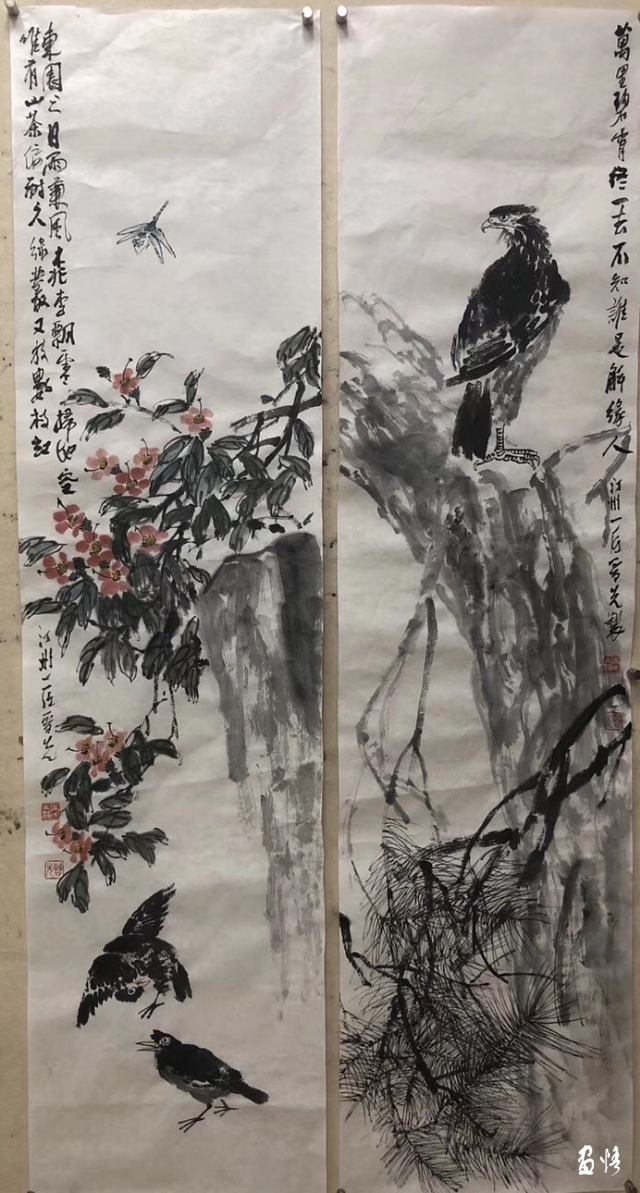 萬里碧霄終一去不知誰是解人
江州一匠先製
東園三日雨兼風桃李飄零掃地空
唯有山茶偏耐久綠叢又放數枝紅
江州一匠先